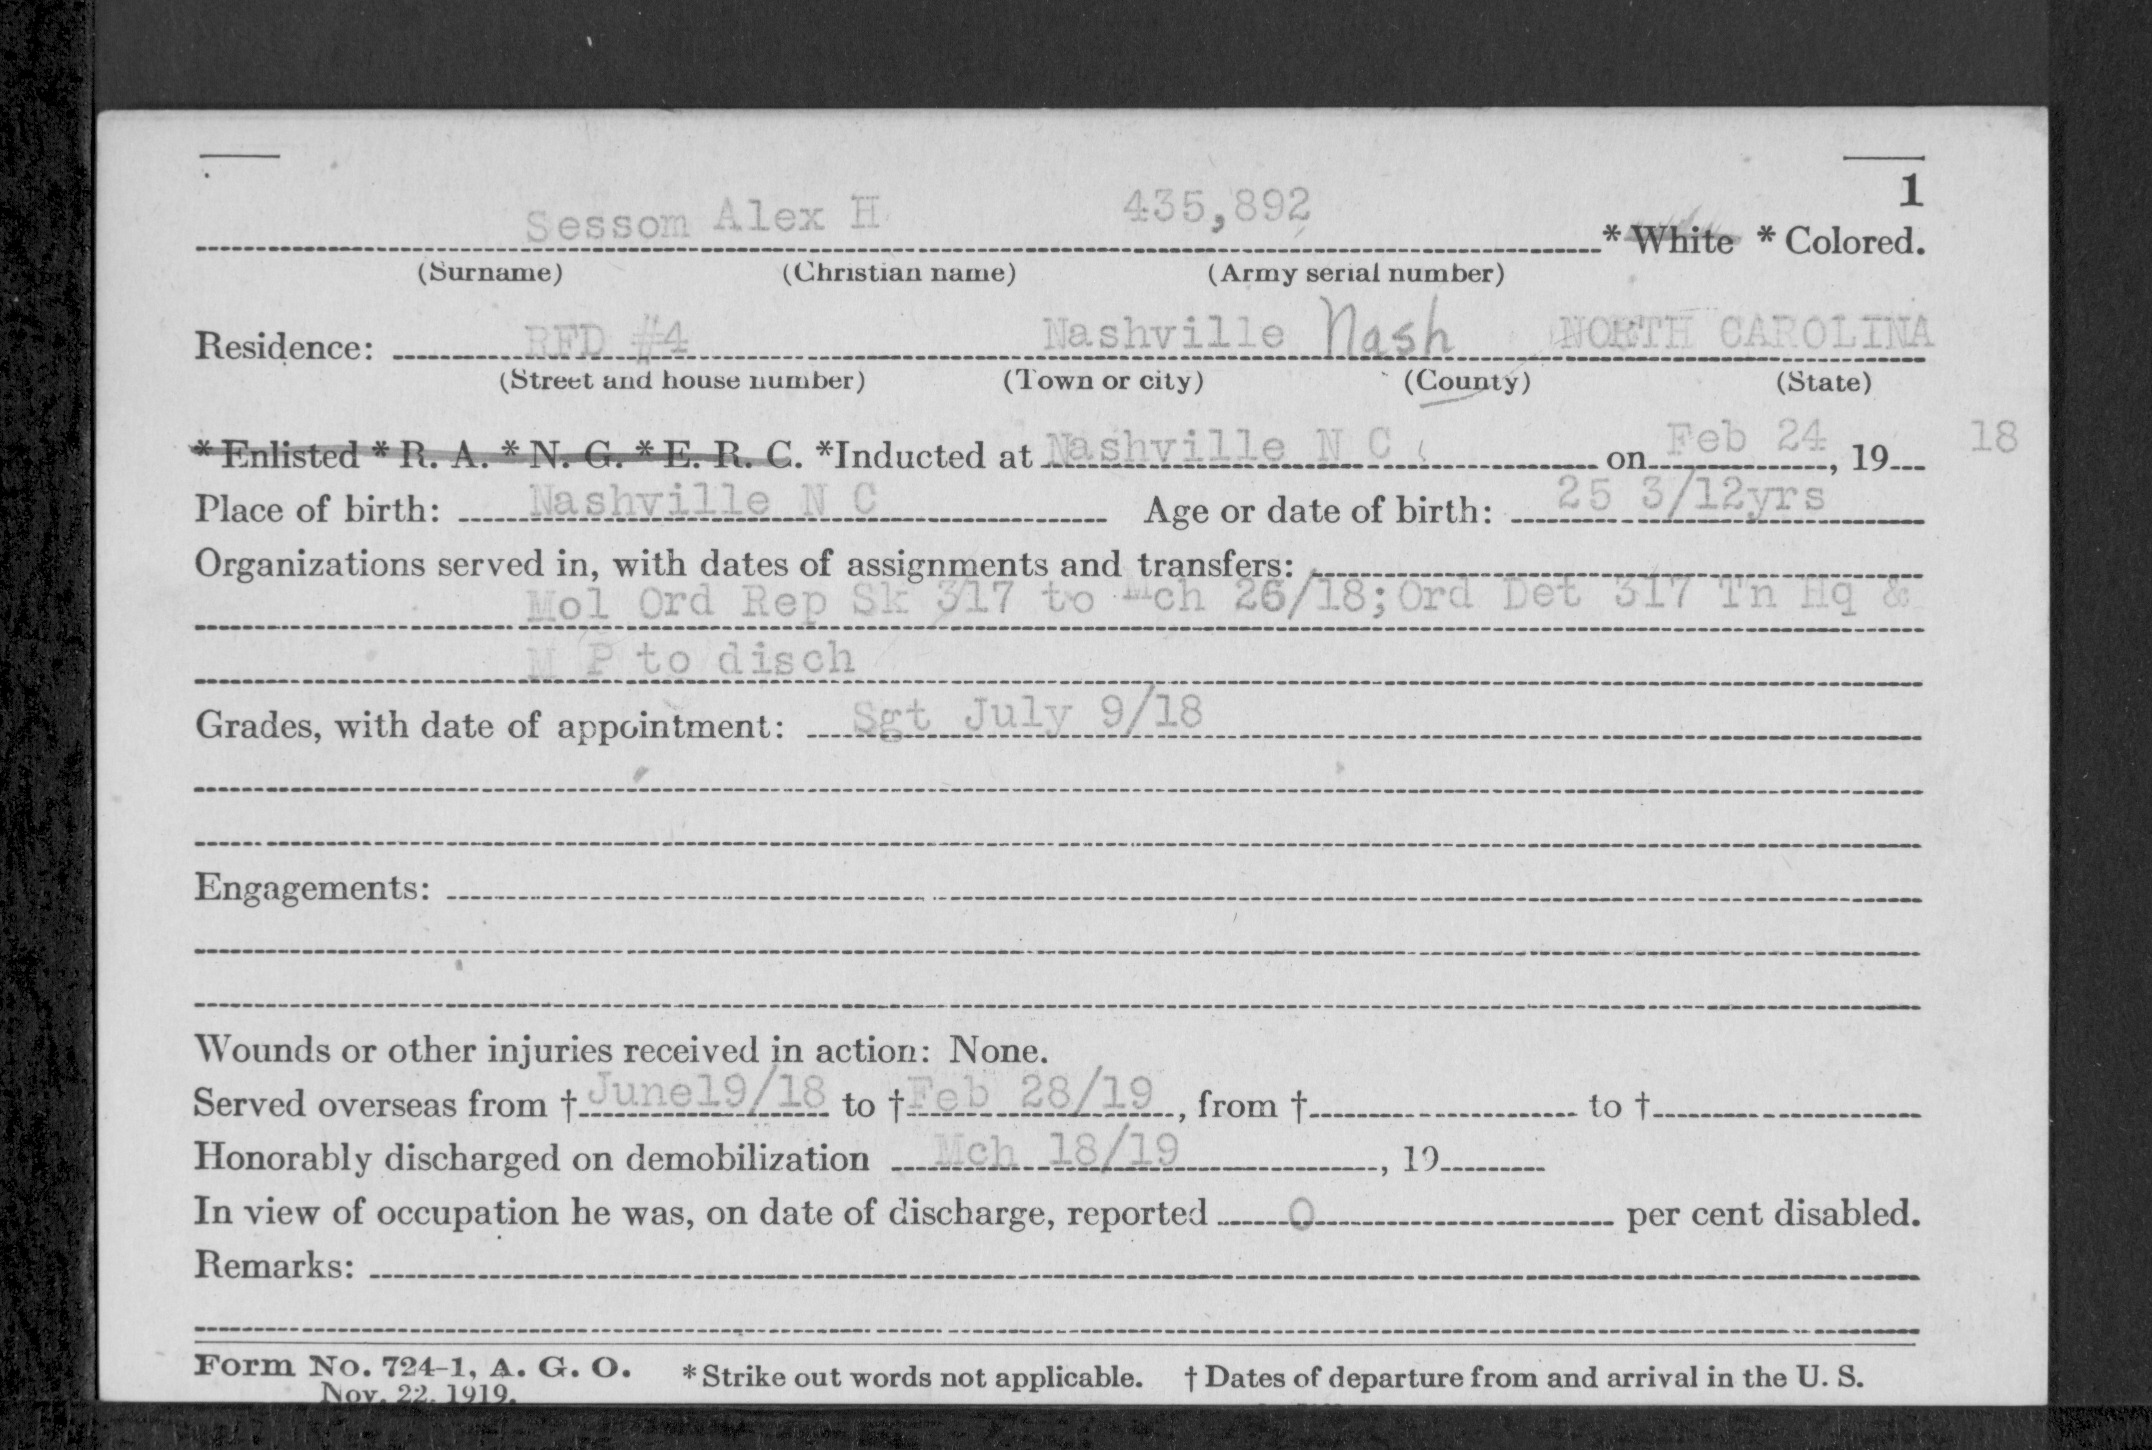 1
Sessom Alex H 435,892 * White * Colored.
(Surname) (Christian name) (Army serial number)
Residence: RFD #4 Nashville Nash NORTH CAROLINA
(Street and house number) (Town or city) (County) (State)
* Enlisted * R. A. * N. G. * E. R. C. *Inducted at Nashville N C on Feb 24, 19 18
Place of birth: Nashville N C Age or date of birth: 25 3/12yrs
Organizations served in, with dates of assignments and transfers:
Mol Ord Rep Sk 317 to Mch 26/18; Ord Det 317 Tn Hq &
M P to disch
Grades, with date of appointment: Sgt July 9/18
Engagements:
Wounds or other injuries received in action: None.
Served overseas from † June19/18 to † Feb 28/19, from † to †
Honorably discharged on demobilization Mch 18/19, 19
In view of occupation he was, on date of discharge, reported 0 per cent disabled.
Remarks:
Form No. 724-1, A. G. O. * Strike out words not applicable. † Dates of departure from and arrival in the U. S.
Nov. 22, 1919.